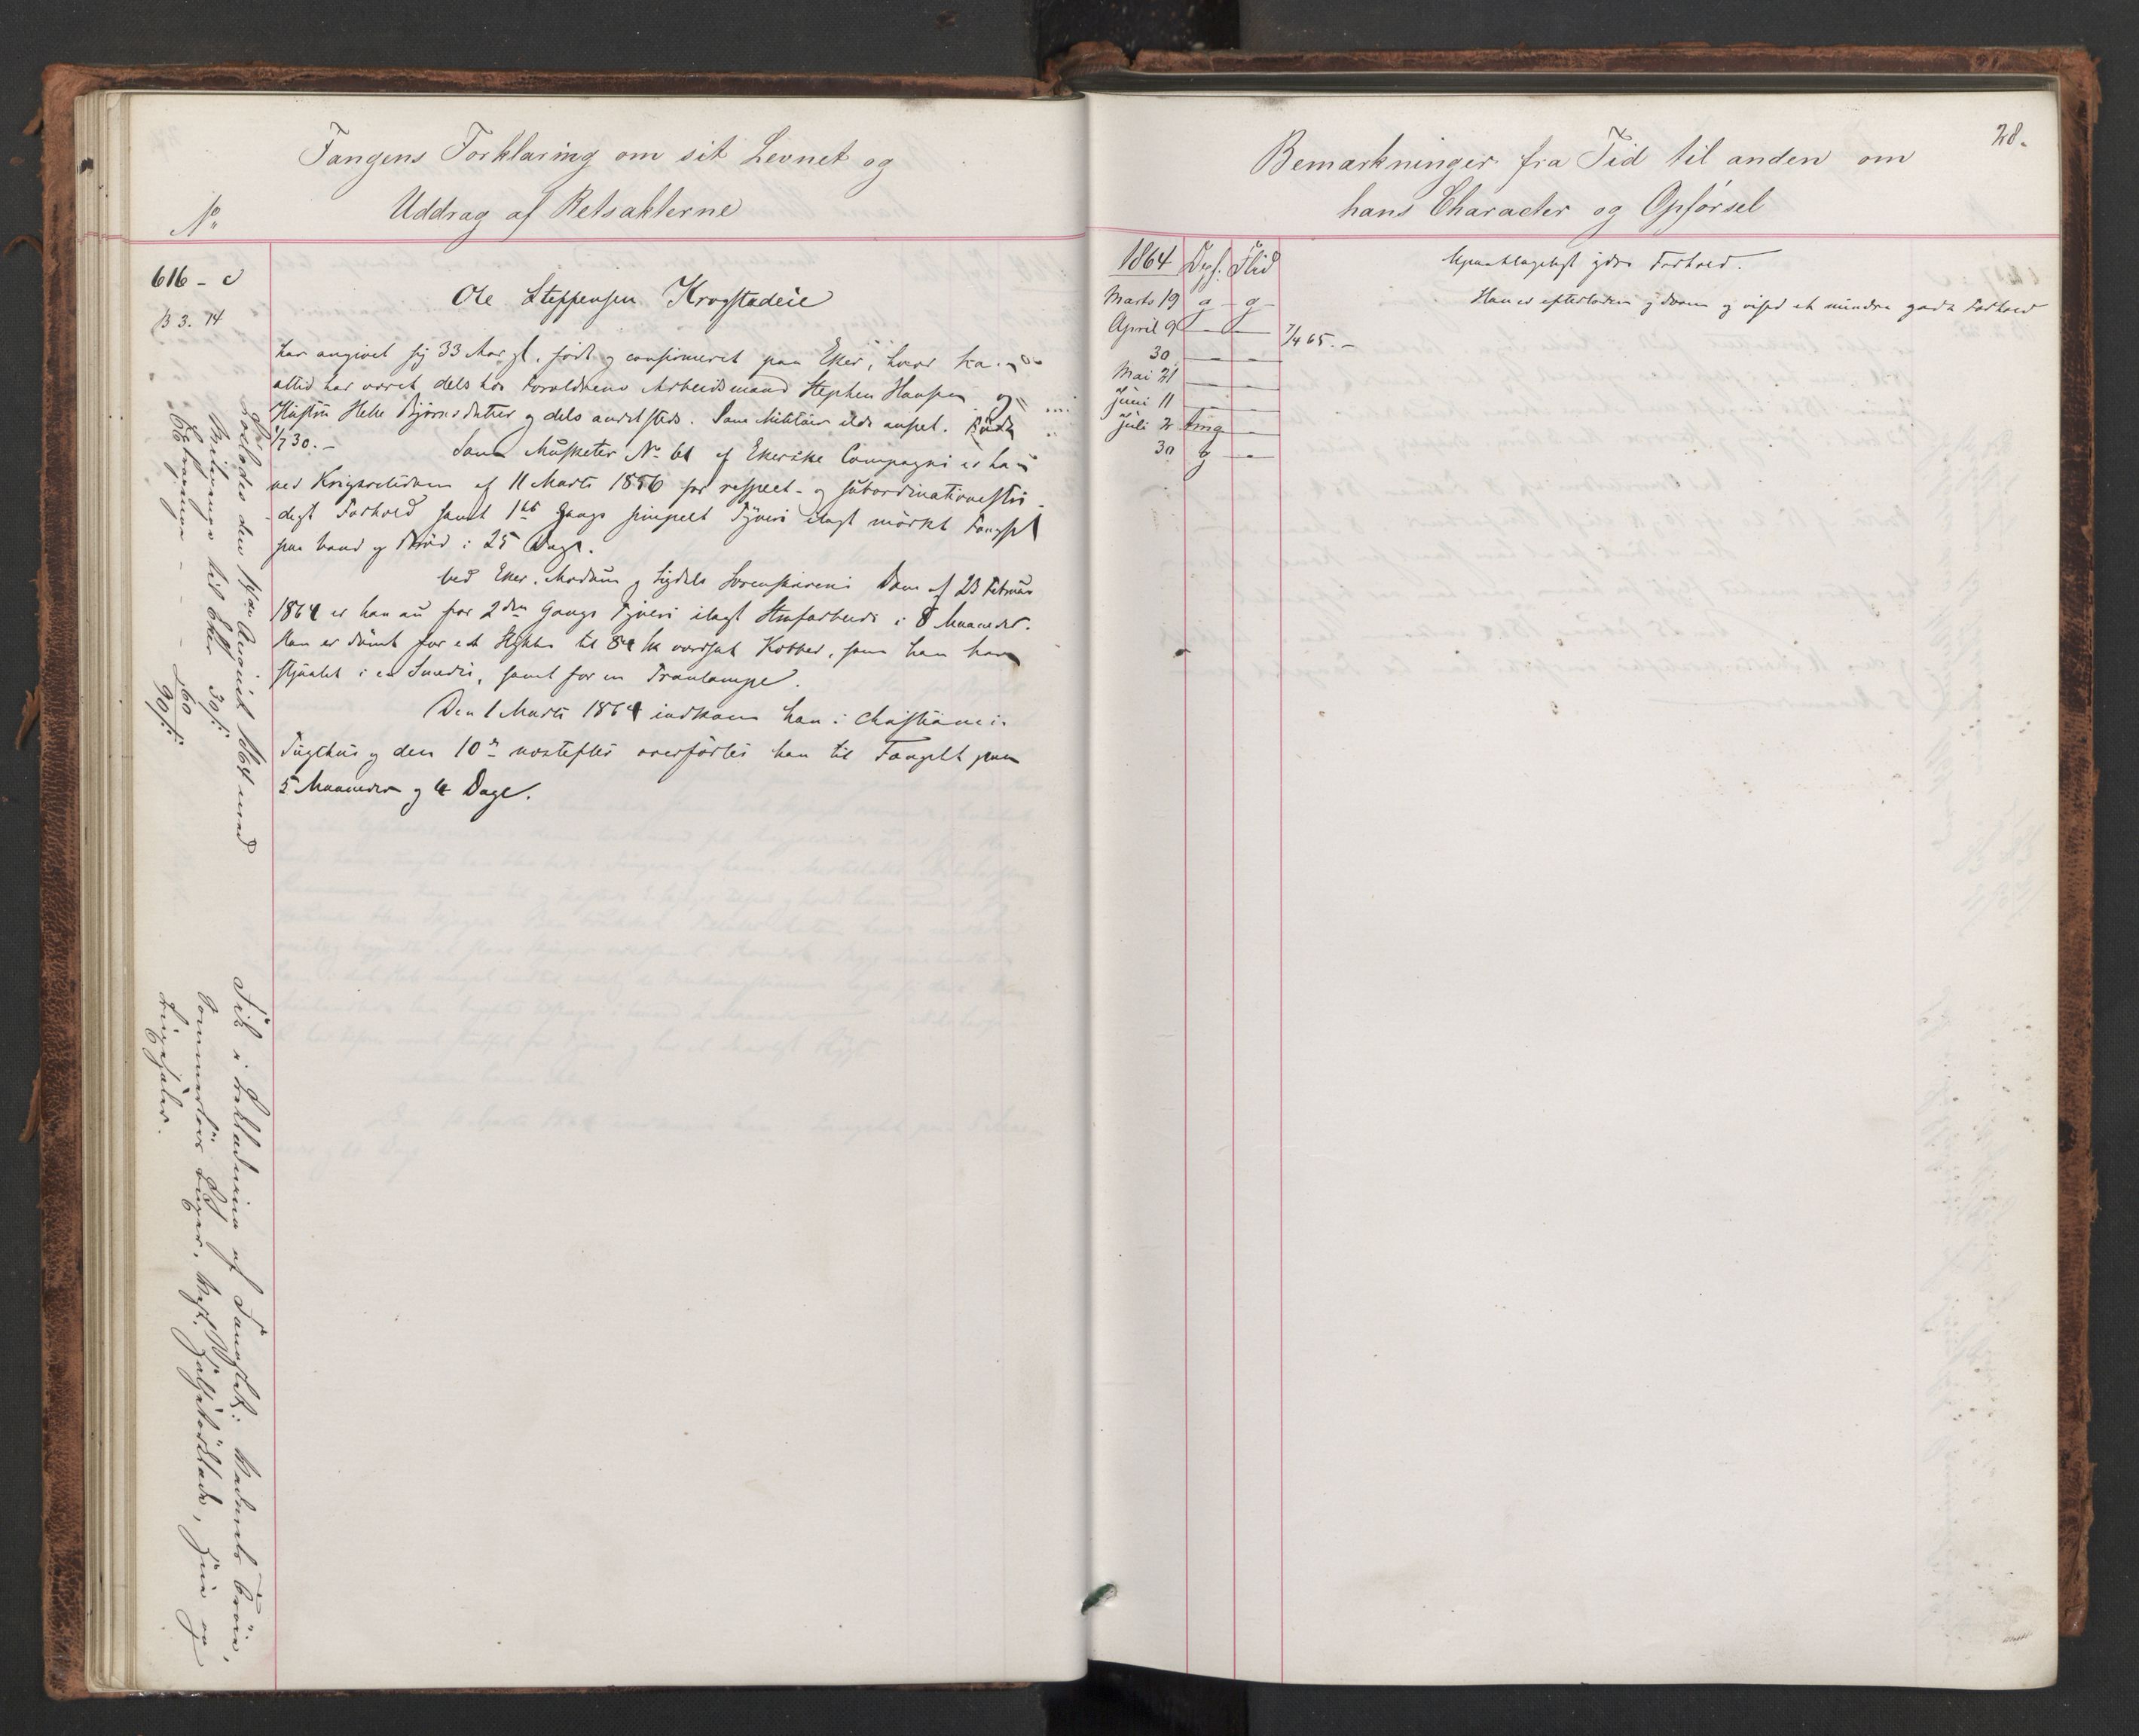 Fangens Forklaring om sit Levnet og
Uddrag af Retsakterne
No
616 - c
B 3. 14
Ole Steffensen Krogstadeie
har angivet sig 33 Aar gl. født og confirmeret paa Eker, hvor
altid har været dels hos Forældrene Arbeidsmand Stephen Hansen og
Hustru Helle Bjørnsdatter og dels andetsteds. Som Militair ilde anset. Født
1/7 30. -
Som Musketer No 61 af Ekerske Compagni er han
ved Krigsretsdom af 11 Marts 1856 for respect- og subordinationsstri-
digt Forhold samt 1ste Gangs simpelt Tyveri ilagt mörkt Fængsel
paa Vand og Brød i 25 Dage.
Ved Eker, Modum og Sigdals Sorenskriveris Dom af 23 Februar
1864 er han nu for 2den Gangs Tyveri ilagt Strafarbeide i 8 Maaneder.
Han er dömt for et Stykke til 84 sk vurderet Kobber, som han har
stjaalet i en Smedie, samt for en Tranlampe.
Den 1 Marts 1864 indkom han i Christiania
Tugthus og den 10de næstefter overførtes han til Fængslet paa
5 Maaneder og 4 Dage.
Løslades den August 1864 med
til Eker 30 s.
60
90 s.
Fik i af Fængslet:
Bemærkninger fra Tid til anden om
hans Character og Opførsel
28.
1864 Opf. Flid
Marts 19 g g
April 9 - -
30 - -
Mai 21 - -
Juni 11 - -
Juli 2 tmg -
30 g -
Upaaklageligt ydre Forhold.
7/4 65. -
Han er efterladen og doven og viser et mindre godt Forhold